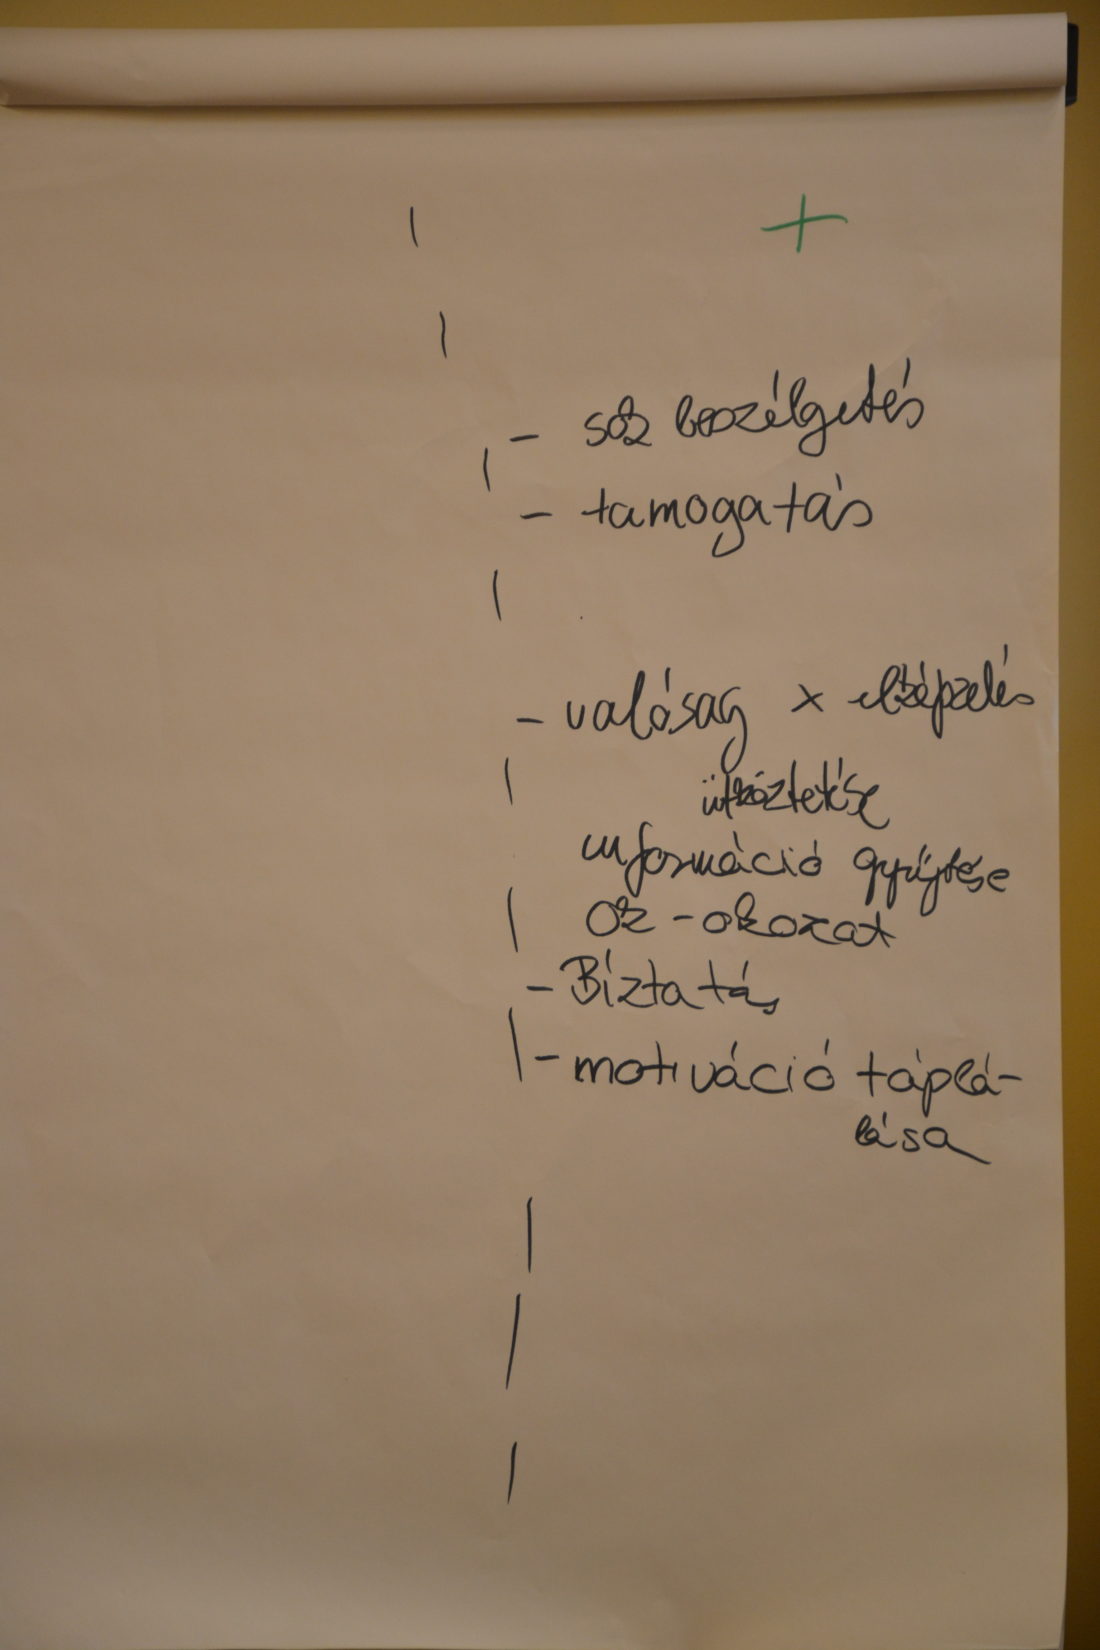 +
- sok beszélgetés
- tamogatás
- valóság x elképzelés
ütköztetése
információ gyűjtése
Ok - okozat
- Bíztatás
- motiváció táplá-
lása